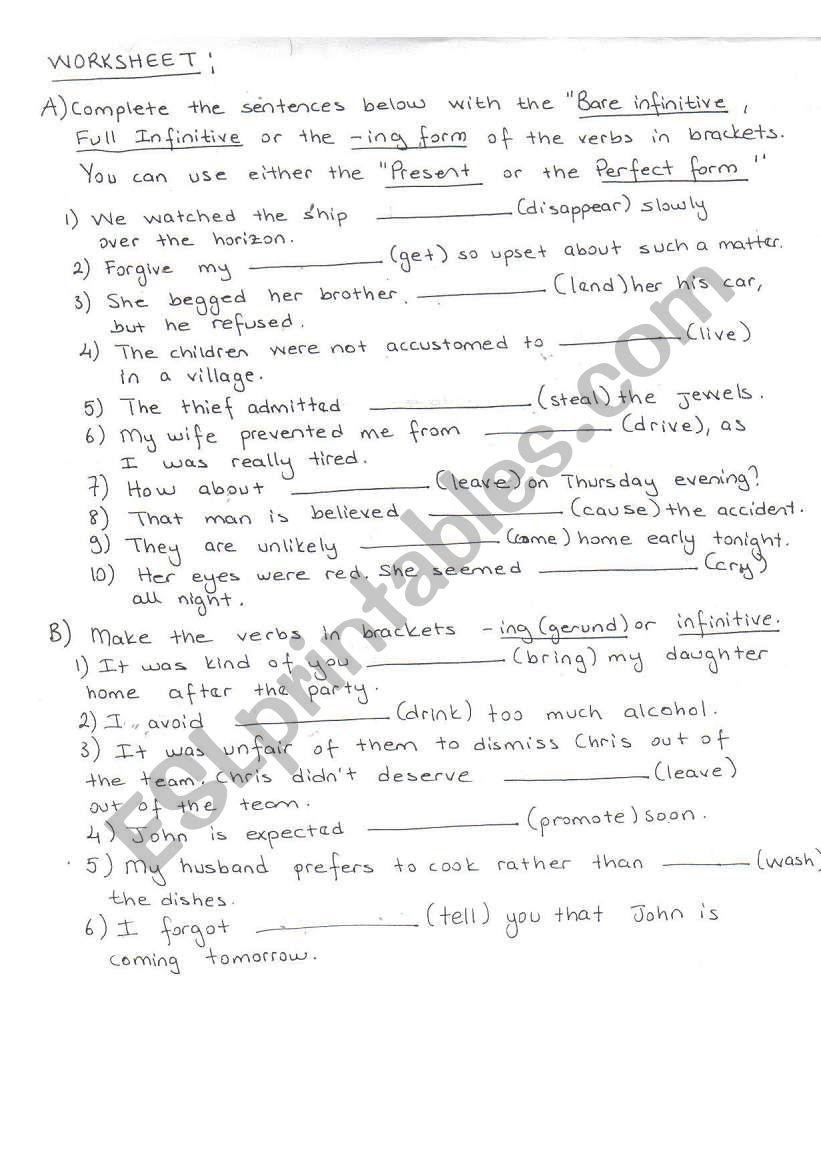 WORKSHEET:
A) Complete the sentences below with the "Bare infinitive,
Full Infinitive or the -ing form of the verbs in brackets.
You can use either the "Present or the Perfect form"
1) We watched the ship __________ (disappear) slowly
over the horizon.
2) Forgive my __________ (get) so upset about such a matter.
3) She begged her brother. __________ (land) her his car,
but he refused.
4) The children were not accustomed to __________ (live)
in a village.
5) The thief admitted __________ (steal) the jewels.
6) My wife prevented me from __________ (drive), as
I was really tired.
7) How about __________ (leave) on Thursday evening?
8) That man is believed __________ (cause) the accident.
9) They are unlikely __________ (come) home early tonight.
10) Her eyes were red. She seemed __________ (cry)
all night.
B) Make the verbs in brackets -ing (gerund) or infinitive.
1) It was kind of you __________ (bring) my daughter
home after the party.
2) I avoid __________ (drink) too much alcohol.
3) It was unfair of them to dismiss Chris out of
the team. Chris didn't deserve __________ (leave)
out of the team.
4) John is expected __________ (promote) soon.
5) My husband prefers to cook rather than ______ (wash)
the dishes.
6) I forgot __________ (tell) you that John is
coming tomorrow.
ESLprintables.com